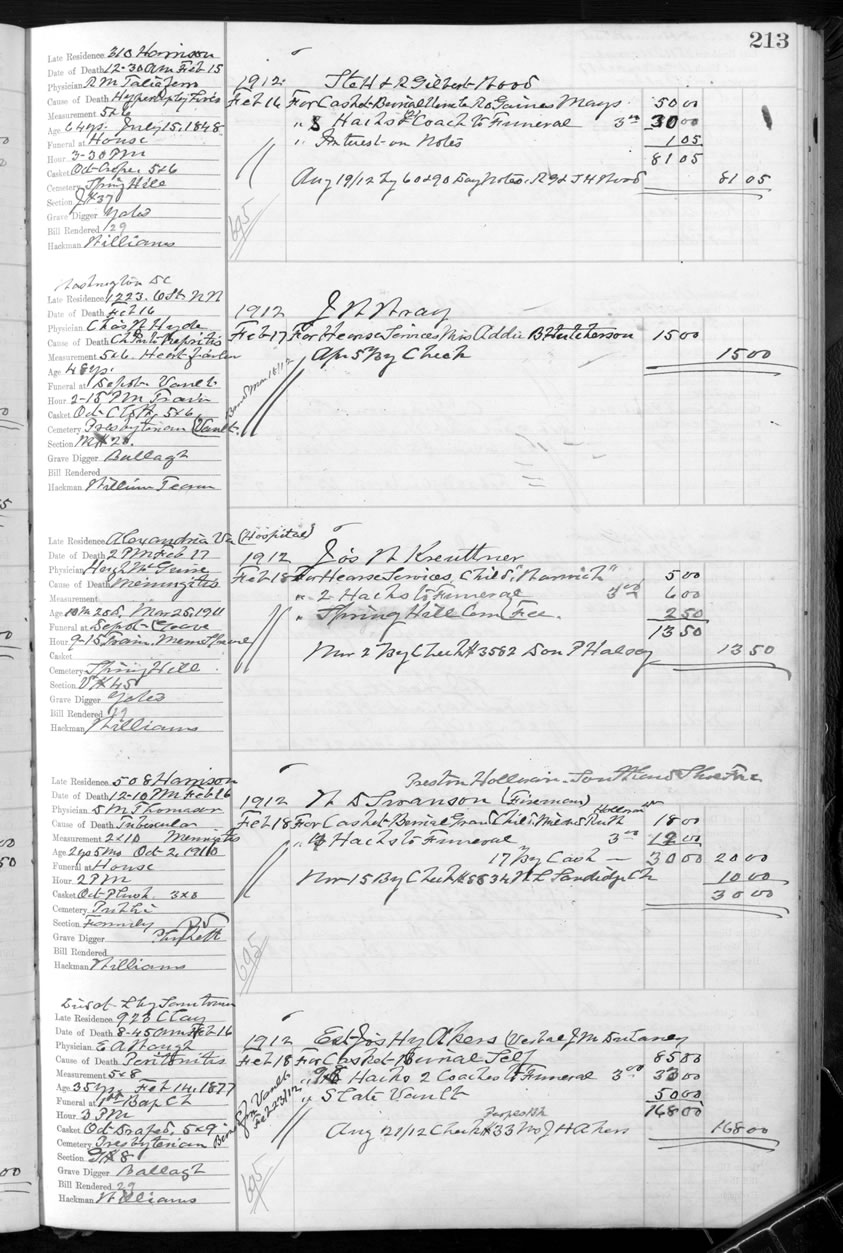 213
Late Residence 310 Harrison
Date of Death 12-30 am Feb 15
Physician R M Taliaferro
Cause of Death
Measurement 5x6
Age 64 yrs. July 15, 1848
Funeral at House
Hour 3-30 PM
Casket Oct 5x6
Cemetery Spring Hill
Section # 37
Grave Digger Yates
Bill Rendered 29
Hackman Williams
1912. & R Gilbert Wood
Feb 16 For Casket Burial Gaines Mays 50 00
" Hacks & Coach to Funeral 3 00 30 00
" Interest on Notes 1 05
81 05
Aug 19/12 By 60 & 90 Day Notes R G & J H Wood 81 05
695
Washington DC
Late Residence 1223. 6th St. N N
Date of Death Feb 16
Physician Chas W Hyde
Cause of Death
Measurement 5x6. Heart failure
Age 48 yrs.
Funeral at Depot Vault
Hour 2-15 PM Train
Casket Oct Cloth 5x6
Cemetery Presbyterian (Vault
Section # 20.
Grave Digger Ballagh
Bill Rendered
Hackman William Team
Mar 18/12
1912 J W Wray
Feb 17 For Hearse Services Mrs Addie B Hutcherson 15 00
Apr 5 By Check 15 00
Late Residence Alexandria Va (Hospital)
Date of Death 2 PM Feb 17
Physician Hugh McGuire
Cause of Death Meningitis
Measurement
Age 10 m 20 d, Mar 25, 1911
Funeral at Depot Grave
Hour 9-15 Train
Casket
Cemetery Spring Hill
Section # 45
Grave Digger Yates
Bill Rendered 19
Hackman Williams
1912 Jos N Kreuttner
Feb 18 For Hearse Services, Child, "Warwick" 5 00
" 2 Hacks to Funeral 3 00 6 00
" Spring Hill Cem Fee. 2 50
13 50
Mar 2 By Check # 3582 Don P Halsey 13 50
Late Residence 508 Harrison
Date of Death 12-10 PM Feb 16
Physician S M Thomason
Cause of Death Tubercular
Measurement 2x10 Meningitis
Age 2 yrs 5 ms Oct 2, 1910
Funeral at House
Hour 2 PM
Casket Oct Plush 3x0
Cemetery
Section Family
Grave Digger
Bill Rendered
Hackman Williams
Preston Holloman Southland Shoe
1912 W D Swanson (Fireman)
Feb 18 For Casket Burial Grand Child Ruth 18 00
" Hacks to Funeral 3 00 12 00
17 By Cash — 30 00 20 00
Nov 15 By Check # 5834 W L Sandidge 10 00
30 00
695
Late Residence 920 Clay
Date of Death 8-45 am Feb 16
Physician E A Waugh
Cause of Death Peritonitis
Measurement 5x8
Age 35 yrs Feb 14, 1877
Funeral at 1st Bap Ch
Hour 3 PM
Casket Oct Draped 5x9
Cemetery Presbyterian
Section # 8
Grave Digger Ballagh
Bill Rendered 29
Hackman Williams
Vault Feb 23/12
1912 Est Jos Hy Akers (Verbal J M Dulaney
Feb 18 For Casket Burial Self 85 00
" Hacks 2 Coaches to Funeral 3 00 33 00
" Slate Vault 50 00
168 00
Aug 21/12 Check # 33 Mrs J H Akers 168 00
695